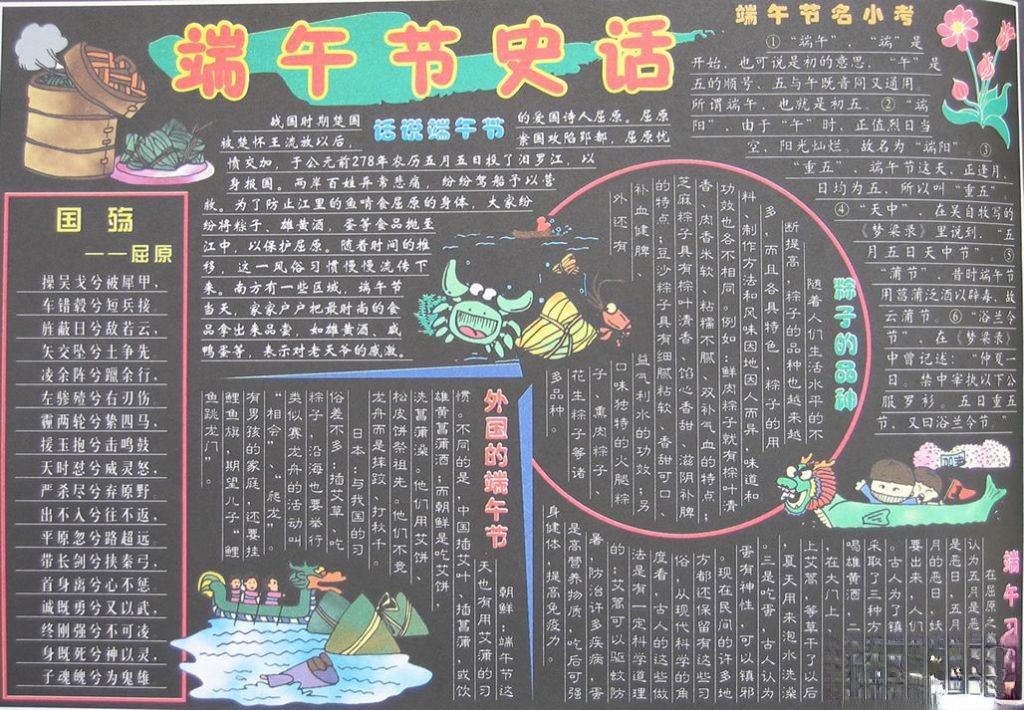 端午节史话
端午节名小考
①“端午”，“端”是
开始，也可说是初的意思，“午”是
五的顺号，五与午既音同又通用，
所谓端午，也就是初五。②“端
阳”，由于“午”时，正值烈日当
空，阳光灿烂，故名为“端阳”。③
“重五”，端午节这天，正逢月，
日均为五，所以叫“重五”。
④“天中”，在吴自牧写的
《梦梁录》里说到：“五
月五日天中节”。⑤
“蒲节”，昔时端午节
用菖蒲泛酒以辟毒，故
云蒲节。⑥“浴兰令
节”，在《梦梁录》
中曾记述：“仲夏一
日，禁中宰执以下公
服罗衫，五日重五
节，又曰浴兰令节。”
话说端午节
战国时期楚国
的爱国诗人屈原，屈原
被楚怀王流放以后，
秦国攻陷郢都，屈原忧
愤交加，于公元前278年农历五月五日投了汨罗江，以
身报国。两岸百姓异常悲痛，纷纷驾船予以营
救。为了防止江里的鱼啃食屈原的身体，大家纷
纷将粽子、雄黄酒，蛋等食品抛至
江中，以保护屈原。随着时间的推
移，这一风俗习惯慢慢流传下
来。南方有一些区域，端午节
当天，家家户户把最时尚的食
品拿出来品尝，如雄黄酒、咸
鸭蛋等，表示对老天爷的感激。
国殇
——屈原
操吴戈兮被犀甲，
车错毂兮短兵接，
旌蔽日兮敌若云，
矢交坠兮士争先，
凌余阵兮躐余行，
左骖殪兮右刃伤，
霾两轮兮絷四马，
援玉抱兮击鸣鼓，
天时怼兮威灵怒，
严杀尽兮弃原野，
出不入兮往不返，
平原忽兮路超远，
带长剑兮挟秦弓，
首身离兮心不惩，
诚既勇兮又以武，
终刚强兮不可凌，
身既死兮神以灵，
子魂魄兮为鬼雄
粽子的品种
随着人们生活水平的不
断提高，粽子的品种也越来越
多，而且各具特色，粽子的用
料、制作方法和风味因地因人而异，味道和
功效也各不相同。例如：鲜肉粽子就有粽叶清
香、肉香米软、粘糯不腻、双补气血的特点；
芝麻粽子具有粽叶清香、馅心香甜、滋阴补脾
的特点；豆沙粽子具有细腻粘软、香甜可口、
补血健脾、益气利水的功效；另
外还有口味独特的火腿粽
子、熏肉粽子、
花生粽子等诸
多品种。
外国的端午节
朝鲜：端午节这
天也有用艾蒲的习
惯。不同的是，中国插艾叶、插菖蒲，或饮
雄黄菖蒲酒；而朝鲜是吃艾饼，
洗菖蒲澡。他们用艾饼、
松皮饼祭祖先。他们不竞
龙舟而是摔跤、打秋千
日本：与我国的习
俗差不多：插艾草、吃
粽子，沿海也要举行
类似赛龙舟的活动叫
“相会”、“爬龙”。
有男孩的家庭，还要挂
鲤鱼旗，期望儿子“鲤
鱼跳龙门”。
端午
在屈原之
认为五月是恶
是恶日，五月
月的恶日，妖
要出来，人们
古人为了镇
采取了三种方
喝雄黄酒，二
在大门上，
上艾蒿，等草干了以后
夏天用来泡水洗澡
三是吃蛋，古人认为
蛋有神性，可以镇邪
现在民间的许多地
方都还保留有这些习
俗，从现代科学的角
度看，古人的这些做
法是有一定科学道理
的：艾蒿可以驱蚊防
暑，防治许多疾病，蛋
是高营养物质，吃后可强
身健体，提高免疫力。